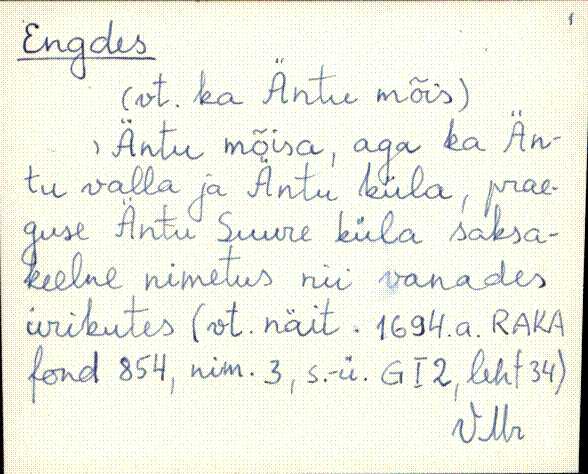 1
Engdes
(vt. ka Äntu mõis)
Äntu mõisa, aga ka Än-
tu valla ja Äntu küla, prae-
guse Äntu Suure küla saksa-
keelne nimetus nii vanades
ürikutes (vt. näit. 1694.a. RAKA
fond 854, nim. 3, s.-ü. GI2, leht 34)
VMr